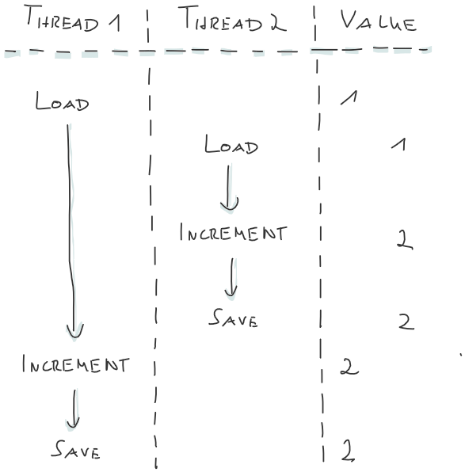 THREAD 1 THREAD 2 VALUE
LOAD 1
LOAD 1
INCREMENT 2
SAVE 2
INCREMENT 2
SAVE 2